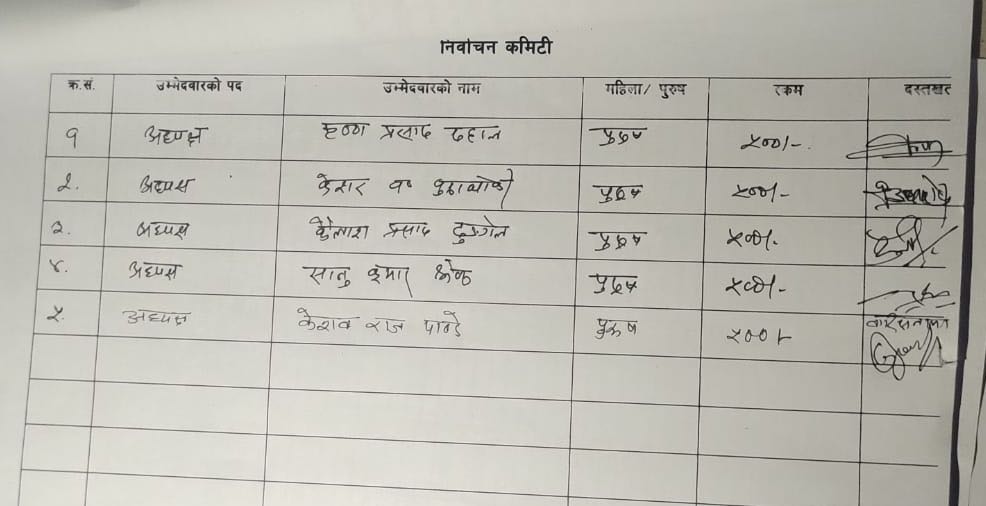 निर्वाचन कमिटी
क्र.सं. उम्मेदवारको पद उम्मेदवारको नाम महिला/ पुरुष रकम दस्तखत
१ अध्यक्ष कृष्ण प्रसाद दहाल पुरुष ५००/-
२. अध्यक्ष केदार पुरुष ५००/-
३. अध्यक्ष कैलाश प्रसाद दुङ्गेल पुरुष ५००/-
४. अध्यक्ष सानु कुमार श्रेष्ठ पुरुष ५००/-
५. अध्यक्ष केशव राज पाण्डे पुरुष ५००/-